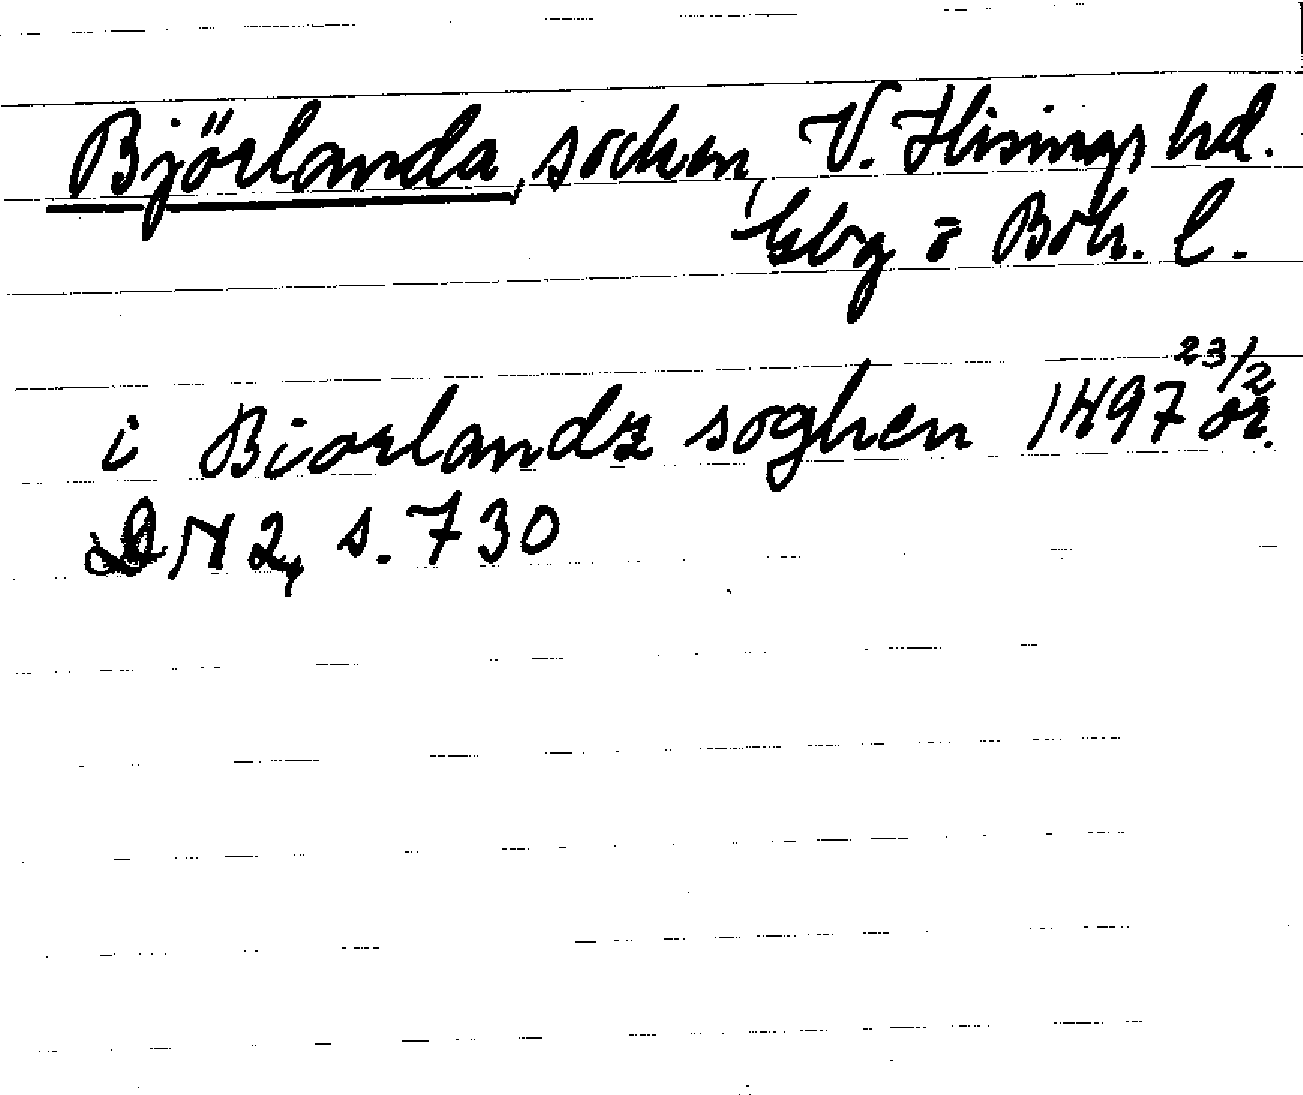 Björlanda, socken, V. Hisings hd.
Gbg o Boh. l.
i Biorlandz soghen 1497 23/2 or.
DN 2, s. 730